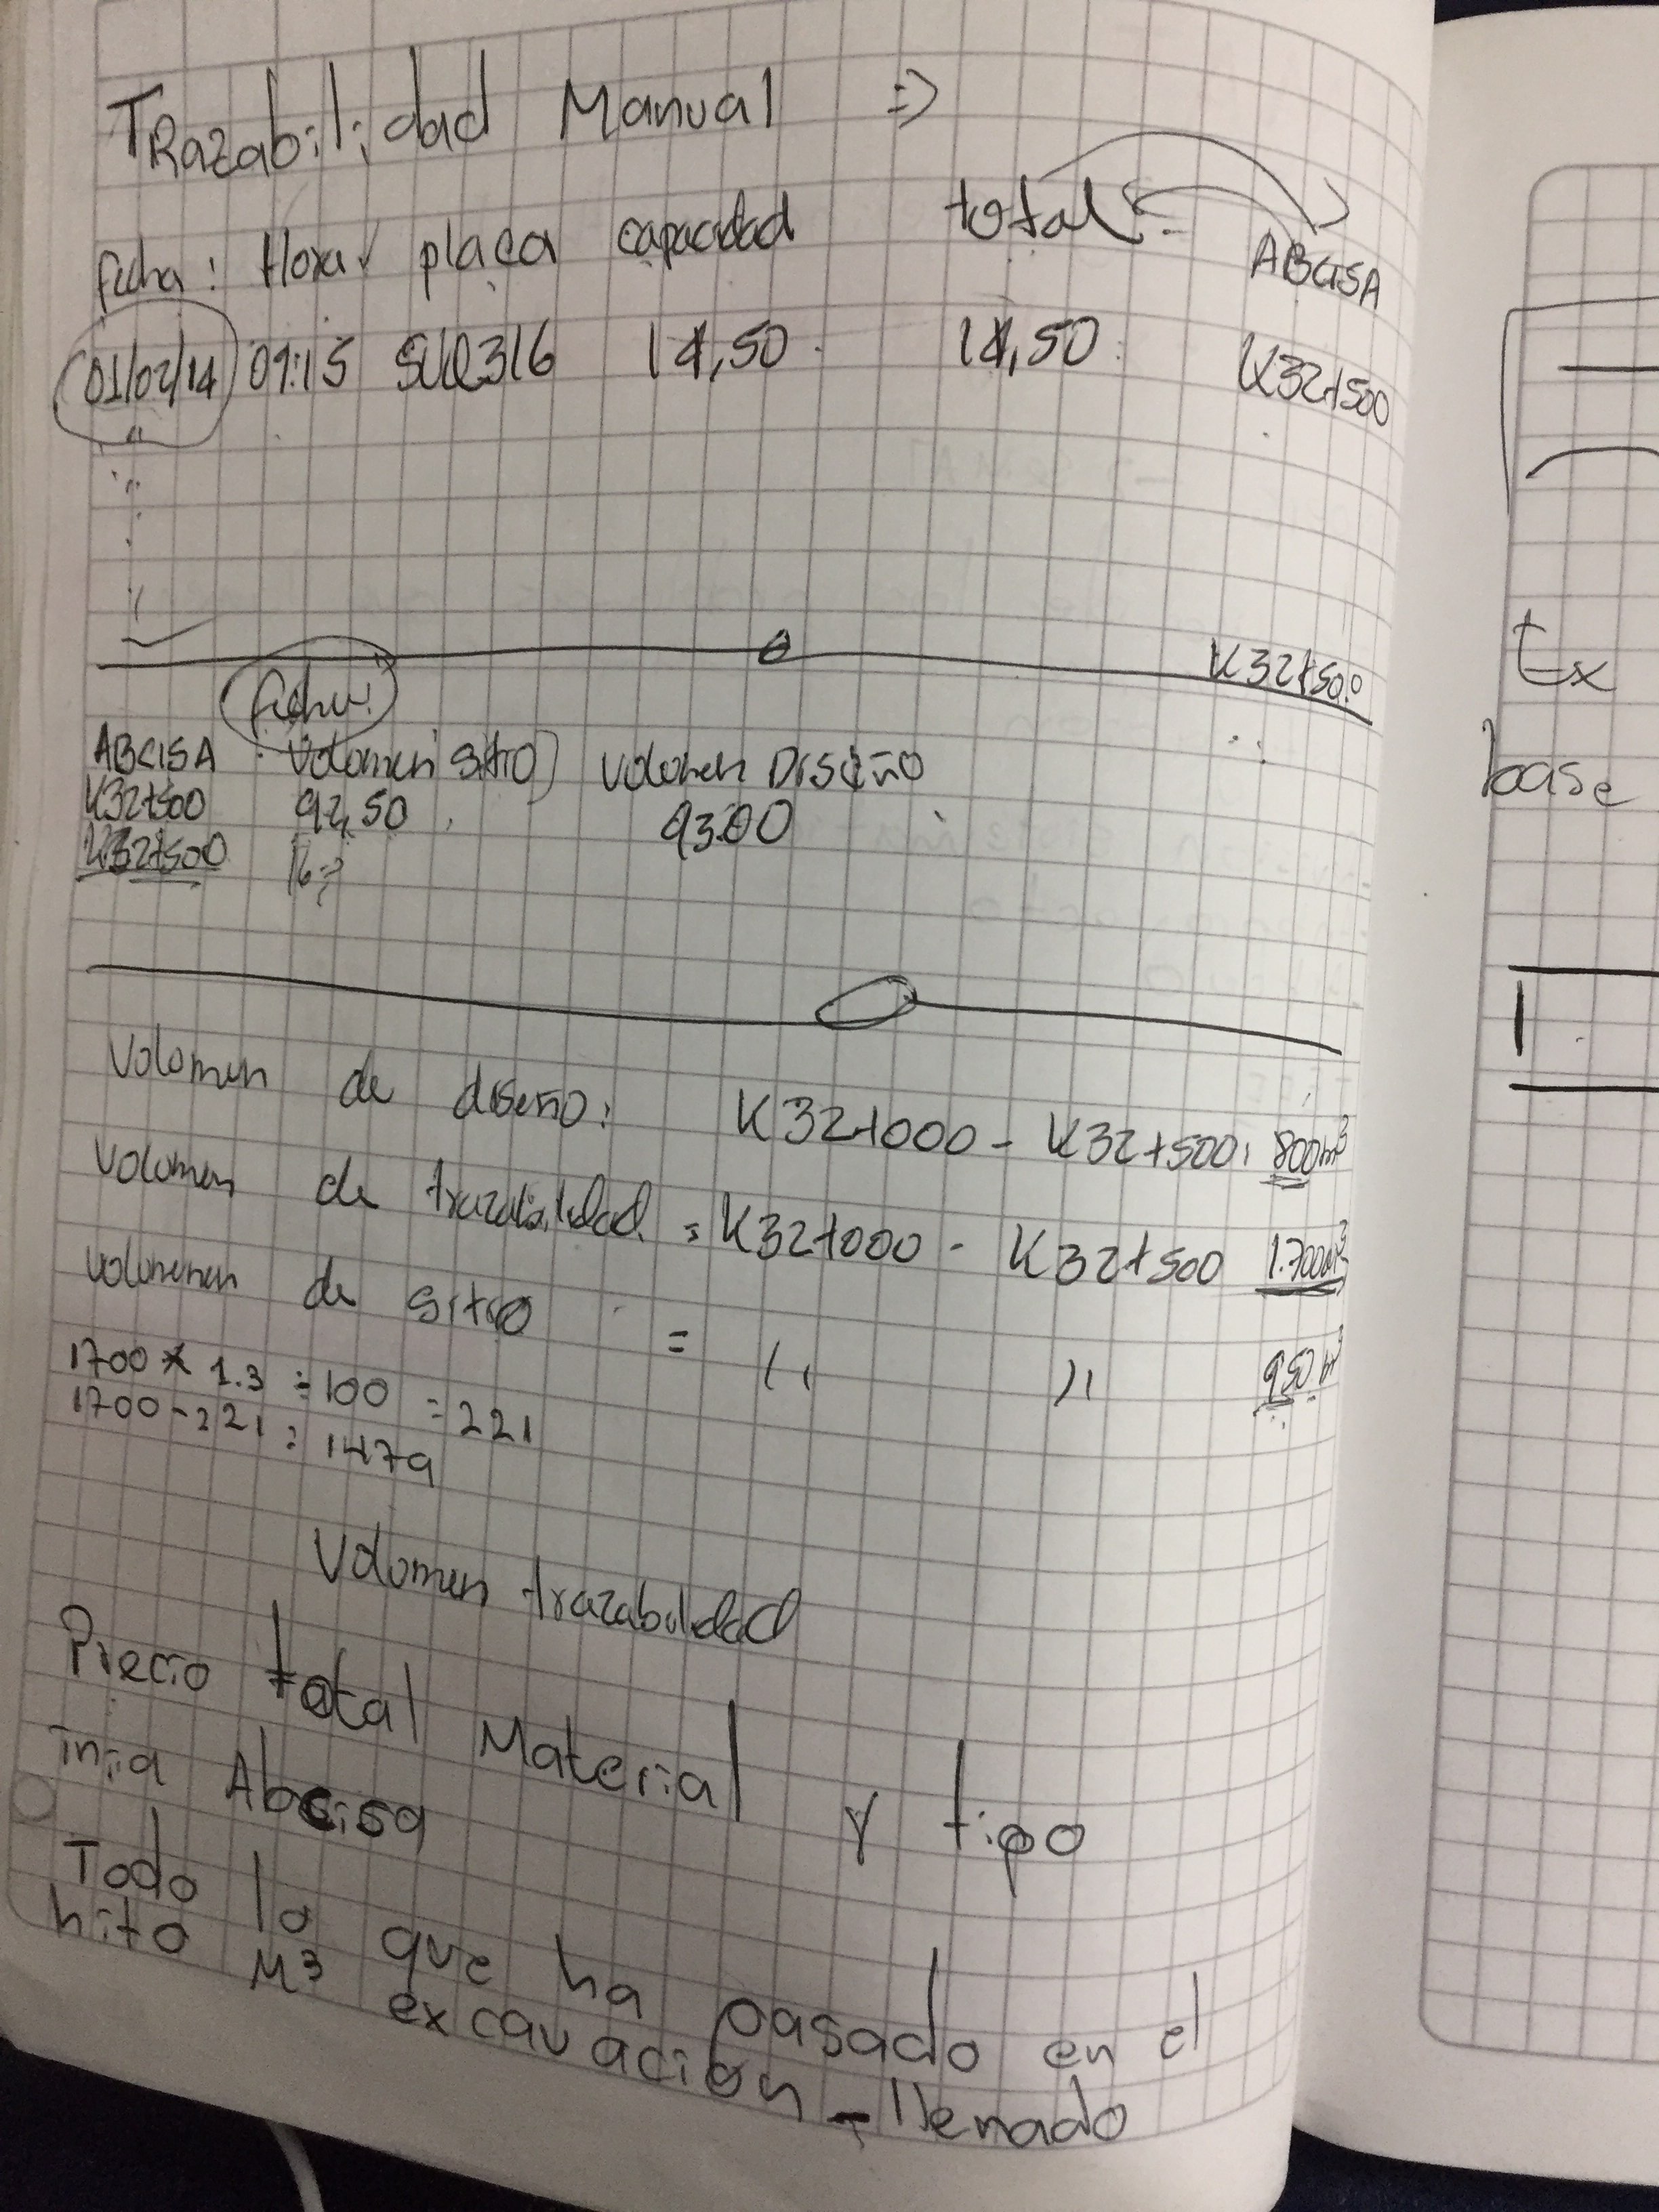 TRazabilidad Manual =>
fecha: Hora placa capacidad total ABCISA
01/02/14 09:15 SUQ316 14,50 14,50 K32+500
"
"
K32+500
fecha:
ABCISA Volomen sitio volomen Diseño
K32+500 92,50 93.00
K32+500 16:?
Volomen de diseño: K32+000 - K32+500: 800m³
Volomen de trazabilidad = K32+000 - K32+500 1.700m³
volumenen de sitio = " " 950 m³
1700 * 1.3 ÷ 100 = 221
1700 - 221 = 1479
Volomen trazabilidad
Precio total Material y tipo
Abcisa
Todo lo que ha pasado en el
hito M3 excavación - llenado
Ex
base